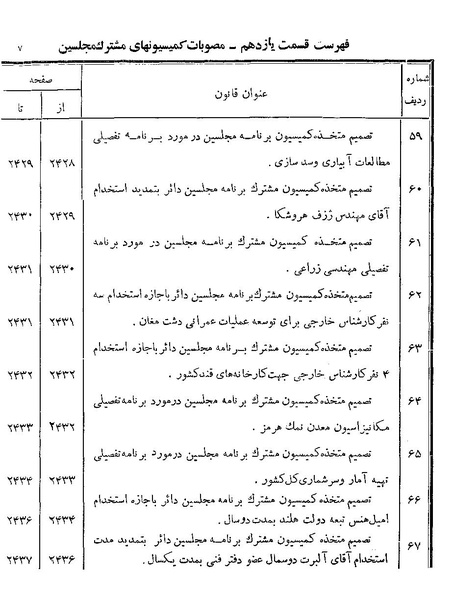 فهرست قسمت یازدهم ــ مصوبات کمیسیونهای مشترك مجلسین ۷
شماره ردیف عنوان قانون صفحه
از تا
۵۹ تصمیم متخذه کمیسیون برنامه مجلسین در مورد برنامه تفصیلی
مطالعات آبیاری وسد سازی . ۲۴۲۸ ۲۴۲۹
۶۰ تصمیم متخذه کمیسیون مشترك برنامه مجلسین دائر بتمدید استخدام
آقای مهندس ژزف هروشکا . ۲۴۲۹ ۲۴۳۰
۶۱ تصمیم متخذه کمیسیون مشترك برنامه مجلسین در مورد برنامه
تفصیلی مهندسی زراعی . ۲۴۳۰ ۲۴۳۱
۶۲ تصمیم متخذه کمیسیون مشترك برنامه مجلسین دائر باجازه استخدام سه
نفر کارشناس خارجی برای توسعه عملیات عمرانی دشت مغان . ۲۴۳۱ ۲۴۳۱
۶۳ تصمیم متخذه کمیسیون مشترك برنامه مجلسین دائر باجازه استخدام
۴ نفر کارشناس خارجی جهت کارخانه‌های قند کشور . ۲۴۳۲ ۲۴۳۲
۶۴ تصمیم متخذه کمیسیون مشترك برنامه مجلسین در مورد برنامه تفصیلی
مکانیزاسیون معدن نمك هرمز . ۲۴۳۲ ۲۴۳۳
۶۵ تصمیم متخذه کمیسیون مشترك برنامه مجلسین در مورد برنامه تفصیلی
تهیه آمار وسرشماری کل کشور . ۲۴۳۳ ۲۴۳۴
۶۶ تصمیم متخذه کمیسیون مشترك برنامه مجلسین دائر باجازه استخدام
امیل هنس تبعه دولت هلند بمدت دوسال . ۲۴۳۴ ۲۴۳۶
۶۷ تصمیم متخذه کمیسیون مشترك برنامه مجلسین دائر بتمدید مدت
استخدام آقای آلبرت دوسمال عضو دفتر فنی بمدت یکسال . ۲۴۳۶ ۲۴۳۷